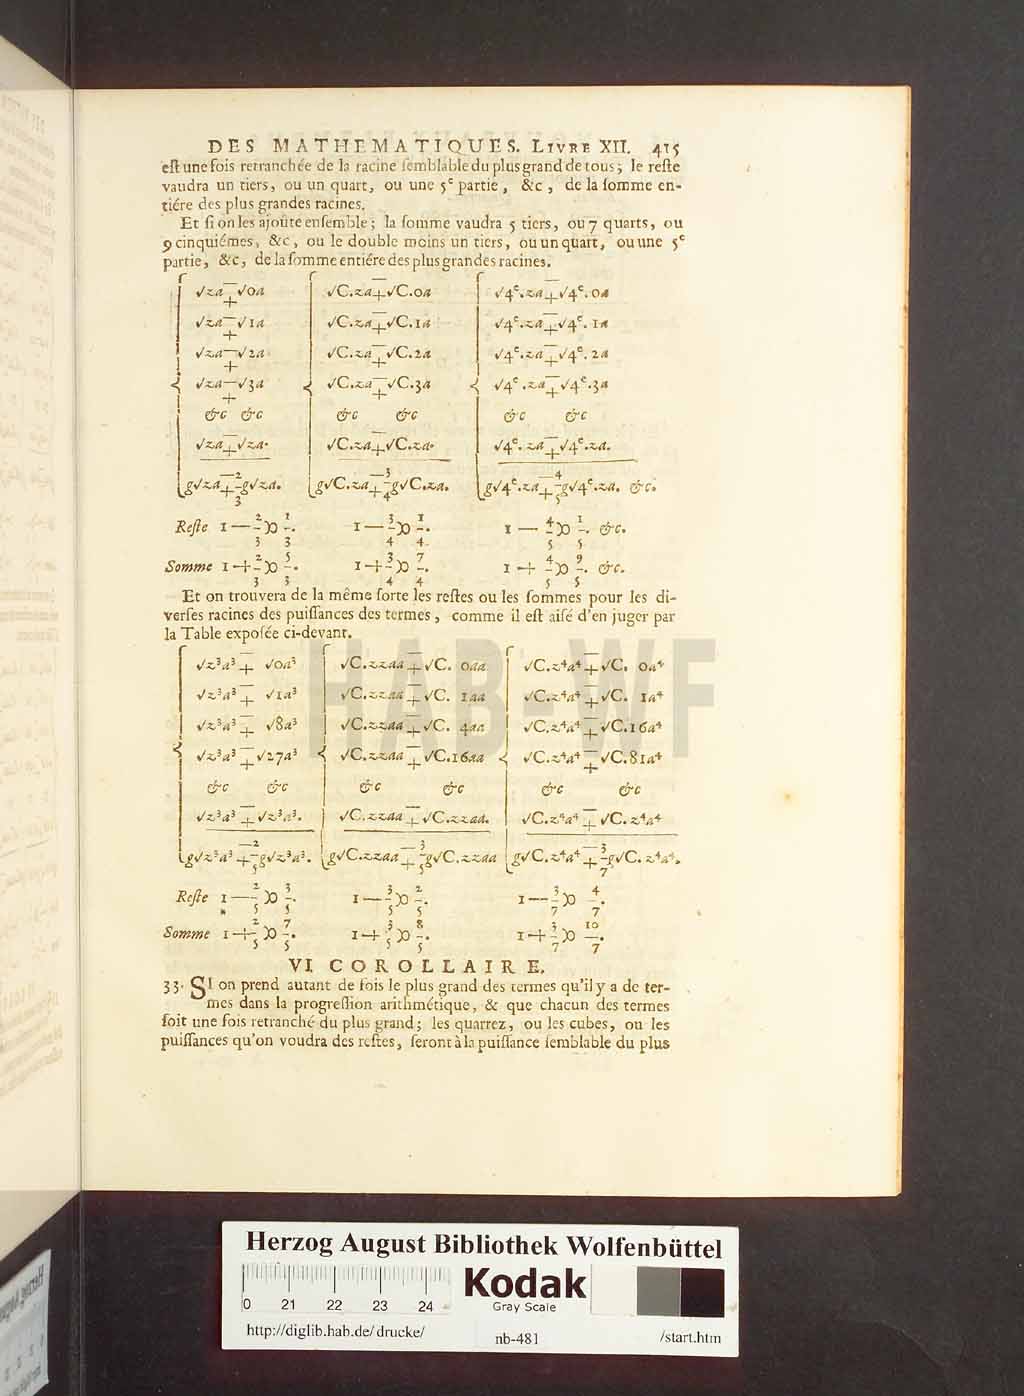 DES MATHEMATIQUES. LIVRE XII. 415
est une fois retranchée de la racine semblable du plus grand de tous; le reste
vaudra un tiers, ou un quart, ou une 5ᵉ partie, &c, de la somme en-
tiére des plus grandes racines.
Et si on les ajoûte ensemble; la somme vaudra 5 tiers, ou 7 quarts, ou
9 cinquiémes, &c, ou le double moins un tiers, ou un quart, ou une 5ᵉ
partie, &c, de la somme entiére des plus grandes racines.
√za ∓ √0a √C.za ∓ √C.0a √4ᵉ.za ∓ √4ᵉ.0a
√za ∓ √1a √C.za ∓ √C.1a √4ᵉ.za ∓ √4ᵉ.1a
√za ∓ √2a √C.za ∓ √C.2a √4ᵉ.za ∓ √4ᵉ.2a
√za ∓ √3a √C.za ∓ √C.3a √4ᵉ.za ∓ √4ᵉ.3a
&c &c &c &c &c &c
√za ∓ √za. √C.za ∓ √C.za. √4ᵉ.za ∓ √4ᵉ.za.
g√za ∓ 2/3 g√za. g√C.za ∓ 3/4 g√C.za. g√4ᵉ.za ∓ 4/5 g√4ᵉ.za. &c.
Reste 1 — 2/3 ꝏ 1/3. 1 — 3/4 ꝏ 1/4. 1 — 4/5 ꝏ 1/5. &c.
Somme 1 + 2/3 ꝏ 5/3. 1 + 3/4 ꝏ 7/4. 1 + 4/5 ꝏ 9/5. &c.
Et on trouvera de la même sorte les restes ou les sommes pour les di-
verses racines des puissances des termes, comme il est aisé d'en juger par
la Table exposée ci-devant.
√z³a³ ∓ √0a³ √C.zzaa ∓ √C. 0aa √C.z⁴a⁴ ∓ √C. 0a⁴
√z³a³ ∓ √1a³ √C.zzaa ∓ √C. 1aa √C.z⁴a⁴ ∓ √C. 1a⁴
√z³a³ ∓ √8a³ √C.zzaa ∓ √C. 4aa √C.z⁴a⁴ ∓ √C.16a⁴
√z³a³ ∓ √27a³ √C.zzaa ∓ √C.16aa √C.z⁴a⁴ ∓ √C.81a⁴
&c &c &c &c &c &c
√z³a³ ∓ √z³a³. √C.zzaa ∓ √C.zzaa. √C.z⁴a⁴ ∓ √C.z⁴a⁴
g√z³a³ ∓ 2/5 g√z³a³. g√C.zzaa ∓ 3/5 g√C.zzaa g√C.z⁴a⁴ ∓ 3/7 g√C.z⁴a⁴.
Reste 1 — 2/5 ꝏ 3/5. 1 — 3/5 ꝏ 2/5. 1 — 3/7 ꝏ 4/7.
Somme 1 + 2/5 ꝏ 7/5. 1 + 3/5 ꝏ 8/5. 1 + 3/7 ꝏ 10/7.
VI COROLLAIRE.
33. SI on prend autant de fois le plus grand des termes qu'il y a de ter-
mes dans la progression arithmétique, & que chacun des termes
soit une fois retranché du plus grand; les quarrez, ou les cubes, ou les
puissances qu'on voudra des restes, seront à la puissance semblable du plus
HAB-WF
Herzog August Bibliothek Wolfenbüttel
0 21 22 23 24
Kodak
Gray Scale
http://diglib.hab.de/drucke/ nb-481 /start.htm